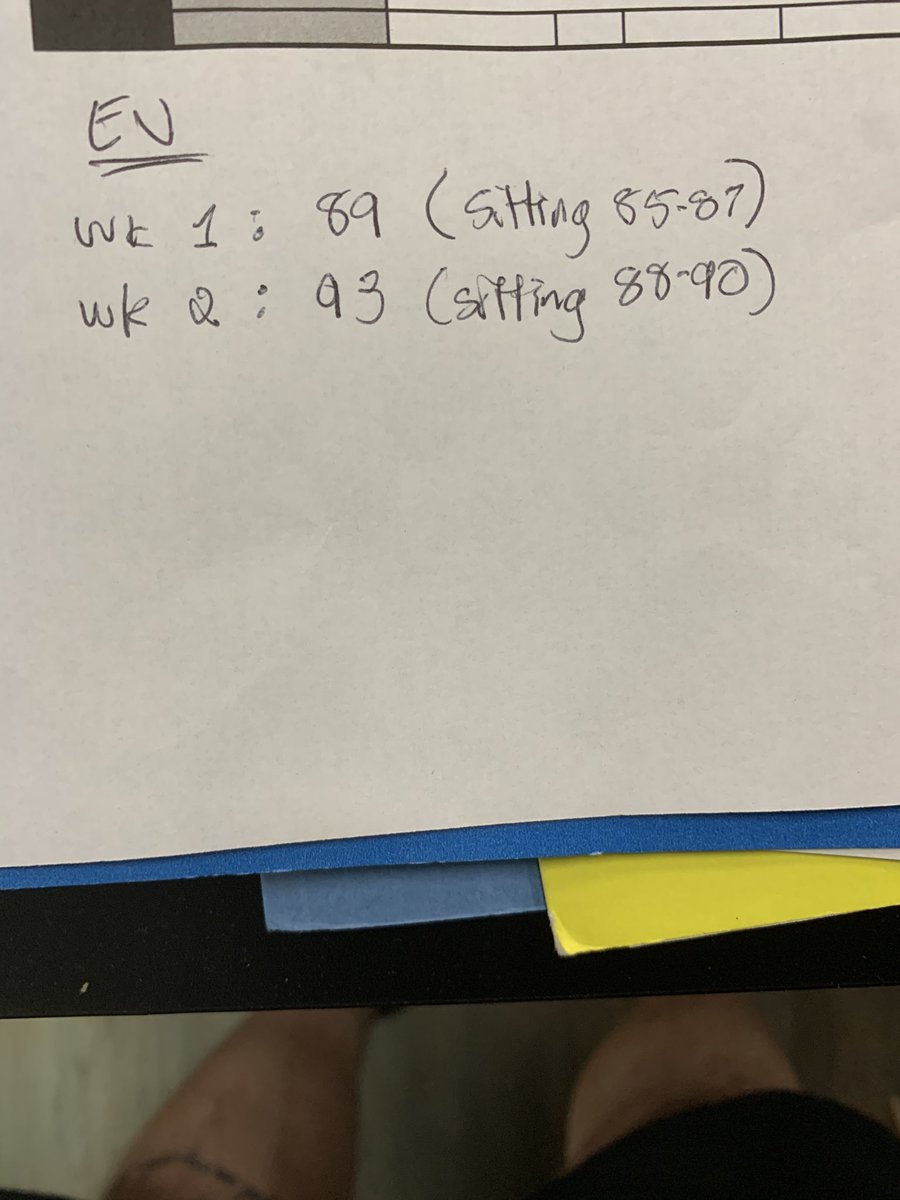 EV
wk 1 : 89 (sitting 85-87)
wk 2 : 93 (sitting 88-90)